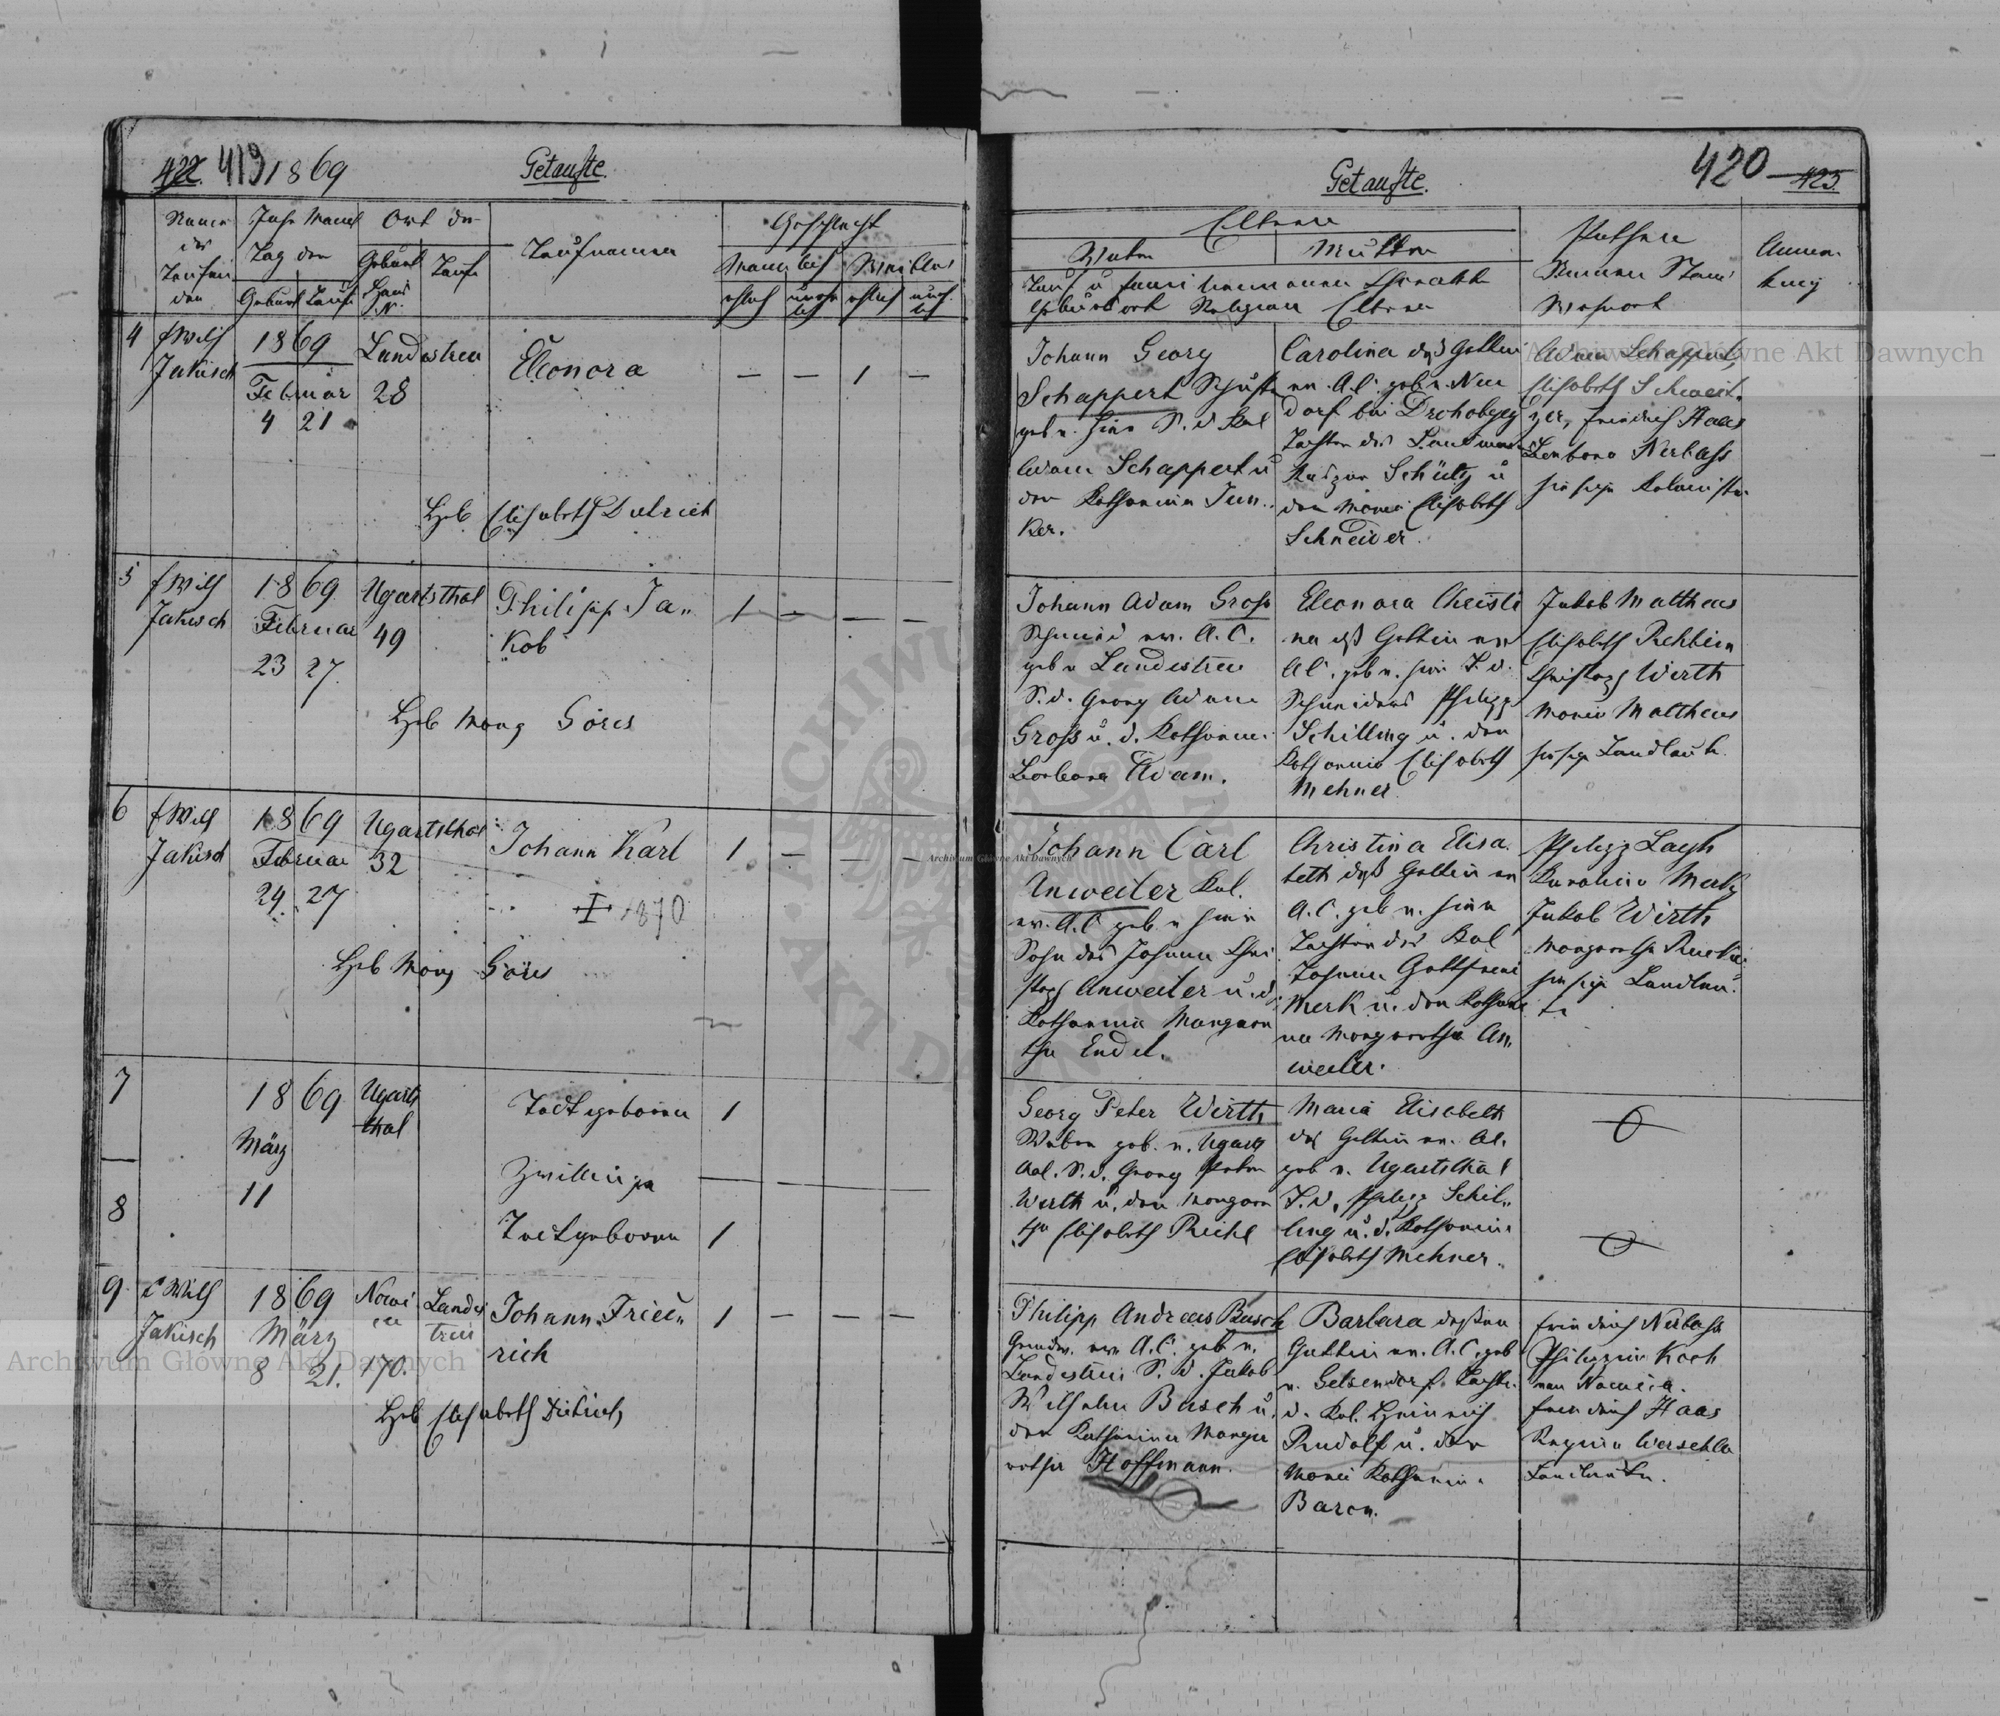 422. 419 1869 Getaufte.
Name des Taufenden
Jahr Monat Tag der
Geburt Taufe
Ort der
Geburt Haus N. Taufe
Taufnamen
Geschlecht
Männlich Weiblich
ehlich unehlich ehlich unehlich
4 Wilh Jakisch
1869 Februar 4 21
Landestreu 28
Eleonora
— — 1 —
Heb Elisabeth Dietrich
5 Wilh Jakisch
1869 Februar 23 27.
Ugartsthal 49
Philipp Ja„
„kob
1 — — —
Heb Marg Göres
6 Wilh Jakisch
1869 Februar 24. 27
Ugartsthal 32
Johann Karl
1870
1 — — —
Heb Marg Göres
7
1869 März 11
Ugartsthal
Todtgeboren 1
Zwillinge
8
Todtgeboren 1
9. Wilh Jakisch
1869 März 8 21.
170. Landestreu
Johann Fried„
rich
1 — — —
Heb Elisabeth Dietrich
Getaufte. 420 423.
Eltern
Vater Mutter
Tauf u Familiennamen Charakter
Geburtsort Religion Eltern
Pathen
Namen Stand
Wohnort
Anmerkung
Johann Georg
Schappert Schuster
geb v. hier S. d Kol
Adam Schappert u
der Katharina Jun„
ker.
Carolina dess Gattin
ev. A.C. geb v. Neu
dorf bei Drohobycz
Tochter des Landmanns
Kaspar Schütz u
der Maria Elisabeth
Schneider.
Adam Schappert,
Elisabeth Schweit„
zer, Friedrich Haas
Barbara Nerbass
hiesige Kolonisten
Johann Adam Gross
Schmied ev. A.C.
geb v Landestreu
S. d. Georg Adam
Gross u. d. Katharina
Barbara Adam.
Eleonora Christi
na dess Gattin ev
A.C. geb v. hier T. d.
Schneiders Philipp
Schilling u. der
Katharina Elisabeth
Mehner
Jakob Mattheus
Elisabeth Rehbein
Christoph Wirth
Maria Mattheus
hiesige Landleute.
Johann Carl
Anweiler Kol.
ev. A.C geb. v hier
Sohn des Johann Chri
stoph Anweiler u. d.
Katharina Margare
tha Endel.
Christina Elisa
beth dess Gattin ev
A.C. geb v. hier
Tochter des Kol
Johann Gottfried
Merk u. der Kathari
na Margaretha An„
weiler.
Philipp
Karolina Merk
Jakob Wirth
Margaretha
hiesige Landleu„
te
Georg Peter Wirth
Weber geb. v. Ugarts
thal. S. d. Georg Peter
Wirth u. der Margare
tha Elisabeth Reichl
Maria Elisabeth
dess Gattin ev. A.C.
geb v. Ugartsthal
T. d. Philipp Schil„
ling u. d. Katharina
Elisabeth Mehner.
Philipp Andreas Busch
Grundw. ev. A.C. geb v.
Landestreu S. d. Jakob
Wilhelm Busch u.
der Katharina Marga
retha Hoffmann.
Barbara dessen
Gattin ev. A.C. geb
v. Gelsendorf Tochter
d. Kol. Heinrich
Rudolf u. der
Maria Katharina
Baron.
Friedrich Nerbass
Philippina Koch
Friedrich Haas
Regina
Landleute.
Archiwum Główne Akt Dawnych
Archiwum Główne Akt Dawnych
Archiwum Główne Akt Dawnych